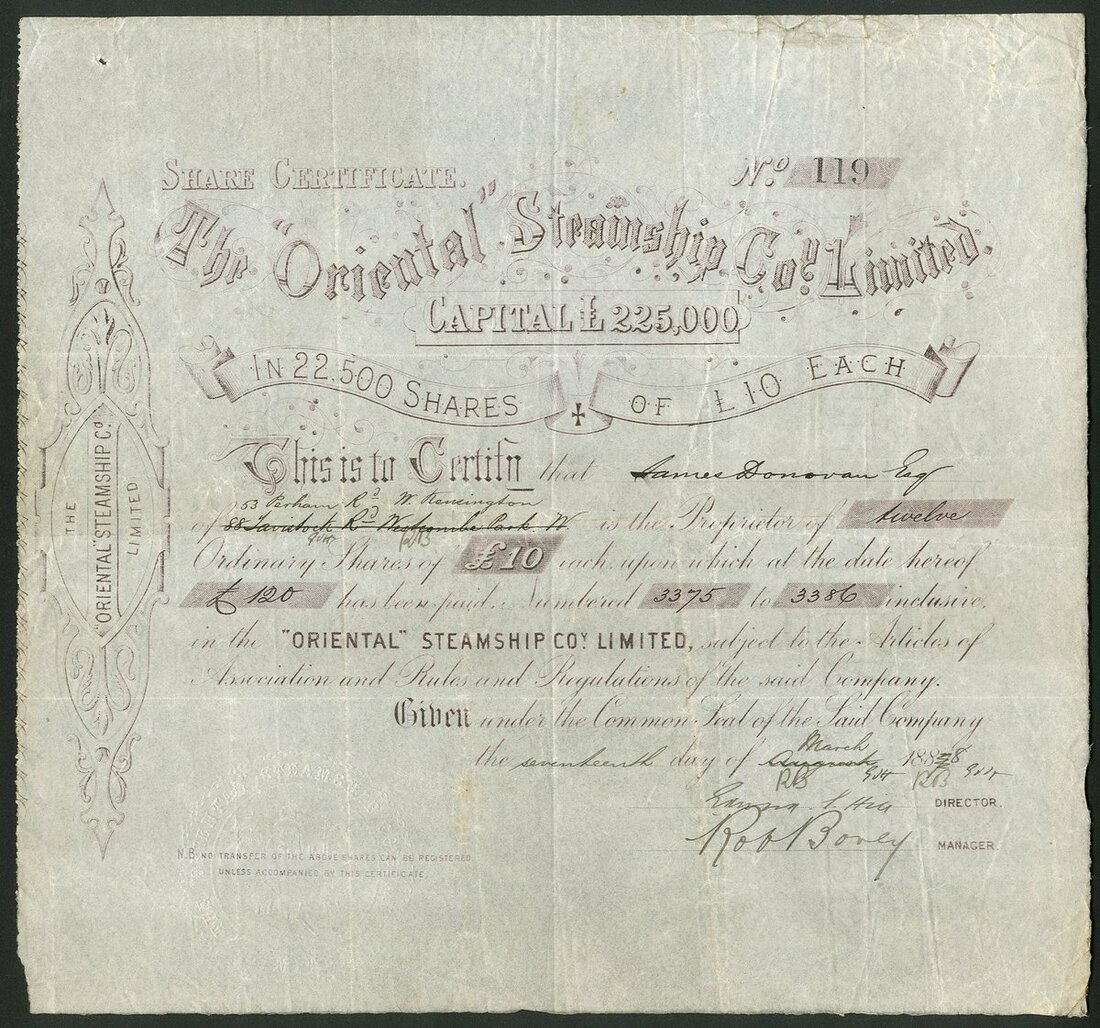 SHARE CERTIFICATE.
No. 119
The "Oriental" Steamship Coy. Limited.
CAPITAL £ 225,000
IN 22,500 SHARES OF £10 EACH
This is to Certify that James Donovan Esq
53 Perham Rd W. Kensington
of 88 Tavistock Rd Westcombe Park W is the Proprietor of twelve
RB
Ordinary Shares of £10 each, upon which at the date hereof
£ 120 has been paid, Numbered 3375 to 3386 inclusive,
in the "ORIENTAL" STEAMSHIP COY. LIMITED, subject to the Articles of
Association and Rules and Regulations of the said Company.
Given under the Common Seal of the Said Company
March
the seventeenth day of August 1888
RB RB
DIRECTOR.
Rob Bovey MANAGER.
N.B. NO TRANSFER OF THE ABOVE SHARES CAN BE REGISTERED
UNLESS ACCOMPANIED BY THIS CERTIFICATE.
THE
"ORIENTAL" STEAMSHIP CO.
LIMITED